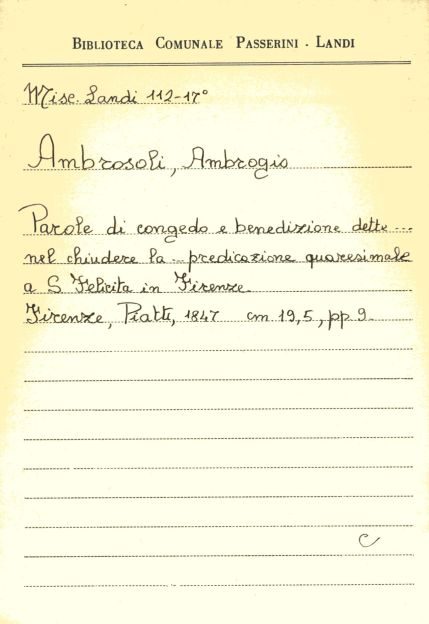 BIBLIOTECA COMUNALE PASSERINI - LANDI
Misc. Landi 112-17°
Ambrosoli, Ambrogio
Parole di congedo e benedizione dette ...
nel chiudere la .. predicazione quaresimale
a S Felicita in Firenze.
Firenze, Piatti, 1847 cm 19,5, pp 9.
C